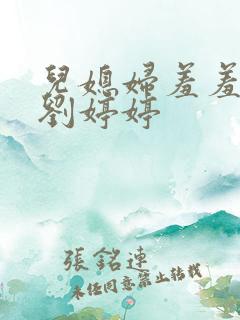 兒媳婦羞羞
劉婷婷
張銘連
未经同意禁止转载